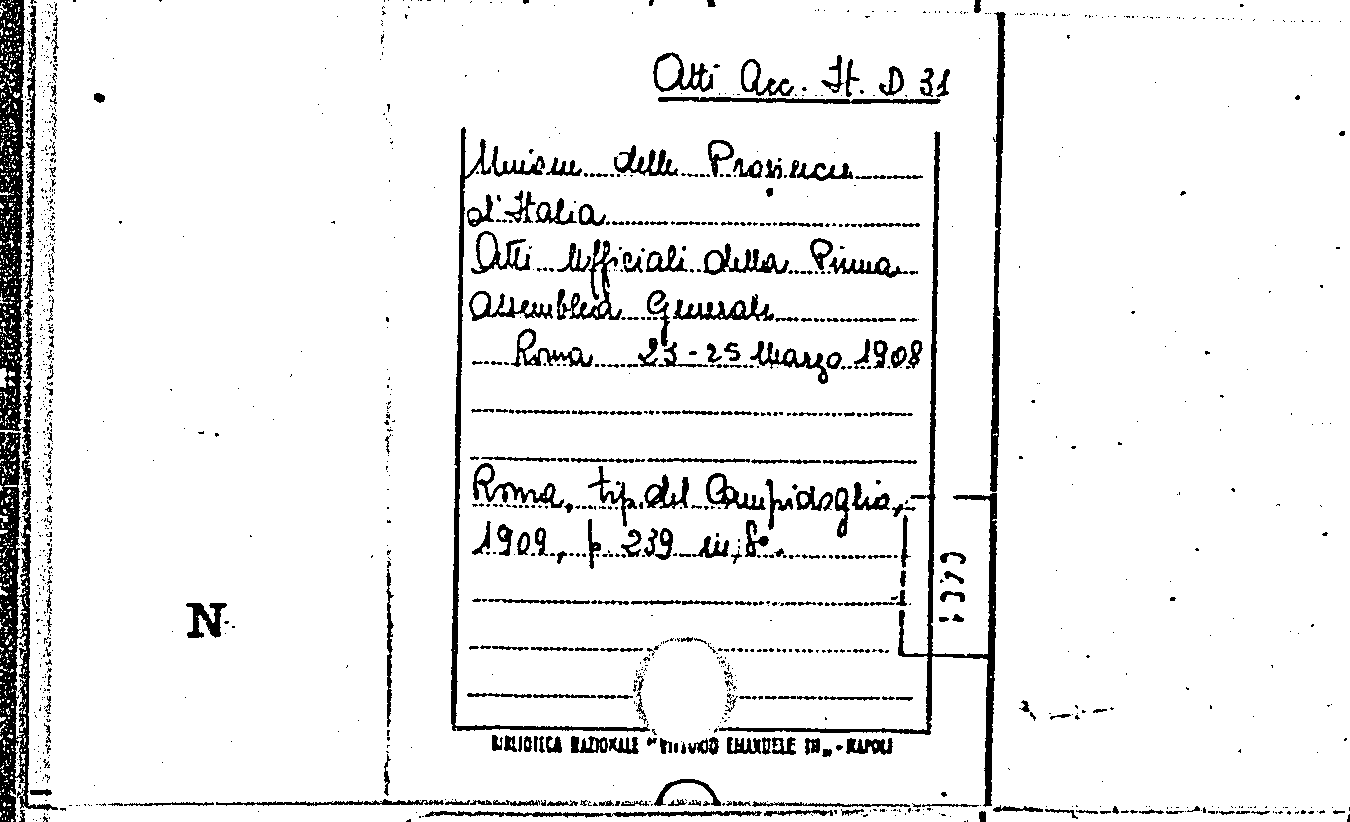 Atti Acc. It. D 31
Unione delle Provincie
d'Italia
Atti Ufficiali della Prima
Assemblea Generale
Roma 23-25 Marzo 1908
Roma, tip. del Campidoglio,
1909, p. 239 in 8°.
N
BIBLIOTECA NAZIONALE "VITTORIO EMANUELE III" - NAPOLI